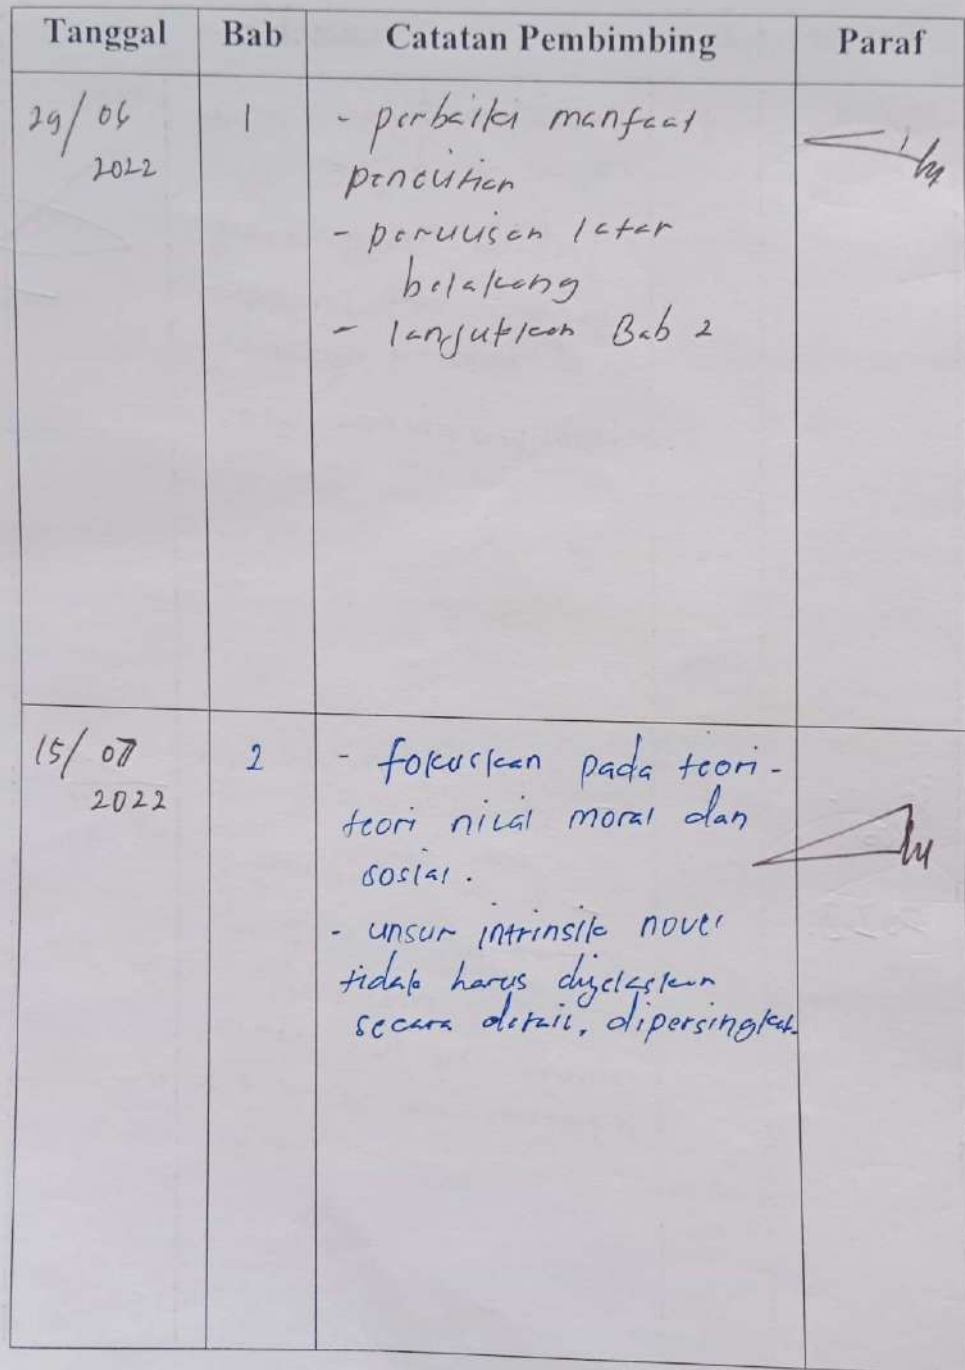 Tanggal Bab Catatan Pembimbing Paraf
29/06 1 - perbaiki manfaat
2022 penelitian
- penulisan latar
belakang
- lanjutkan Bab 2
15/07 2 - fokuskan pada teori-
2022 teori nilai moral dan
sosial.
- unsur intrinsik novel
tidak harus dijelaskan
secara detail, dipersingkat.